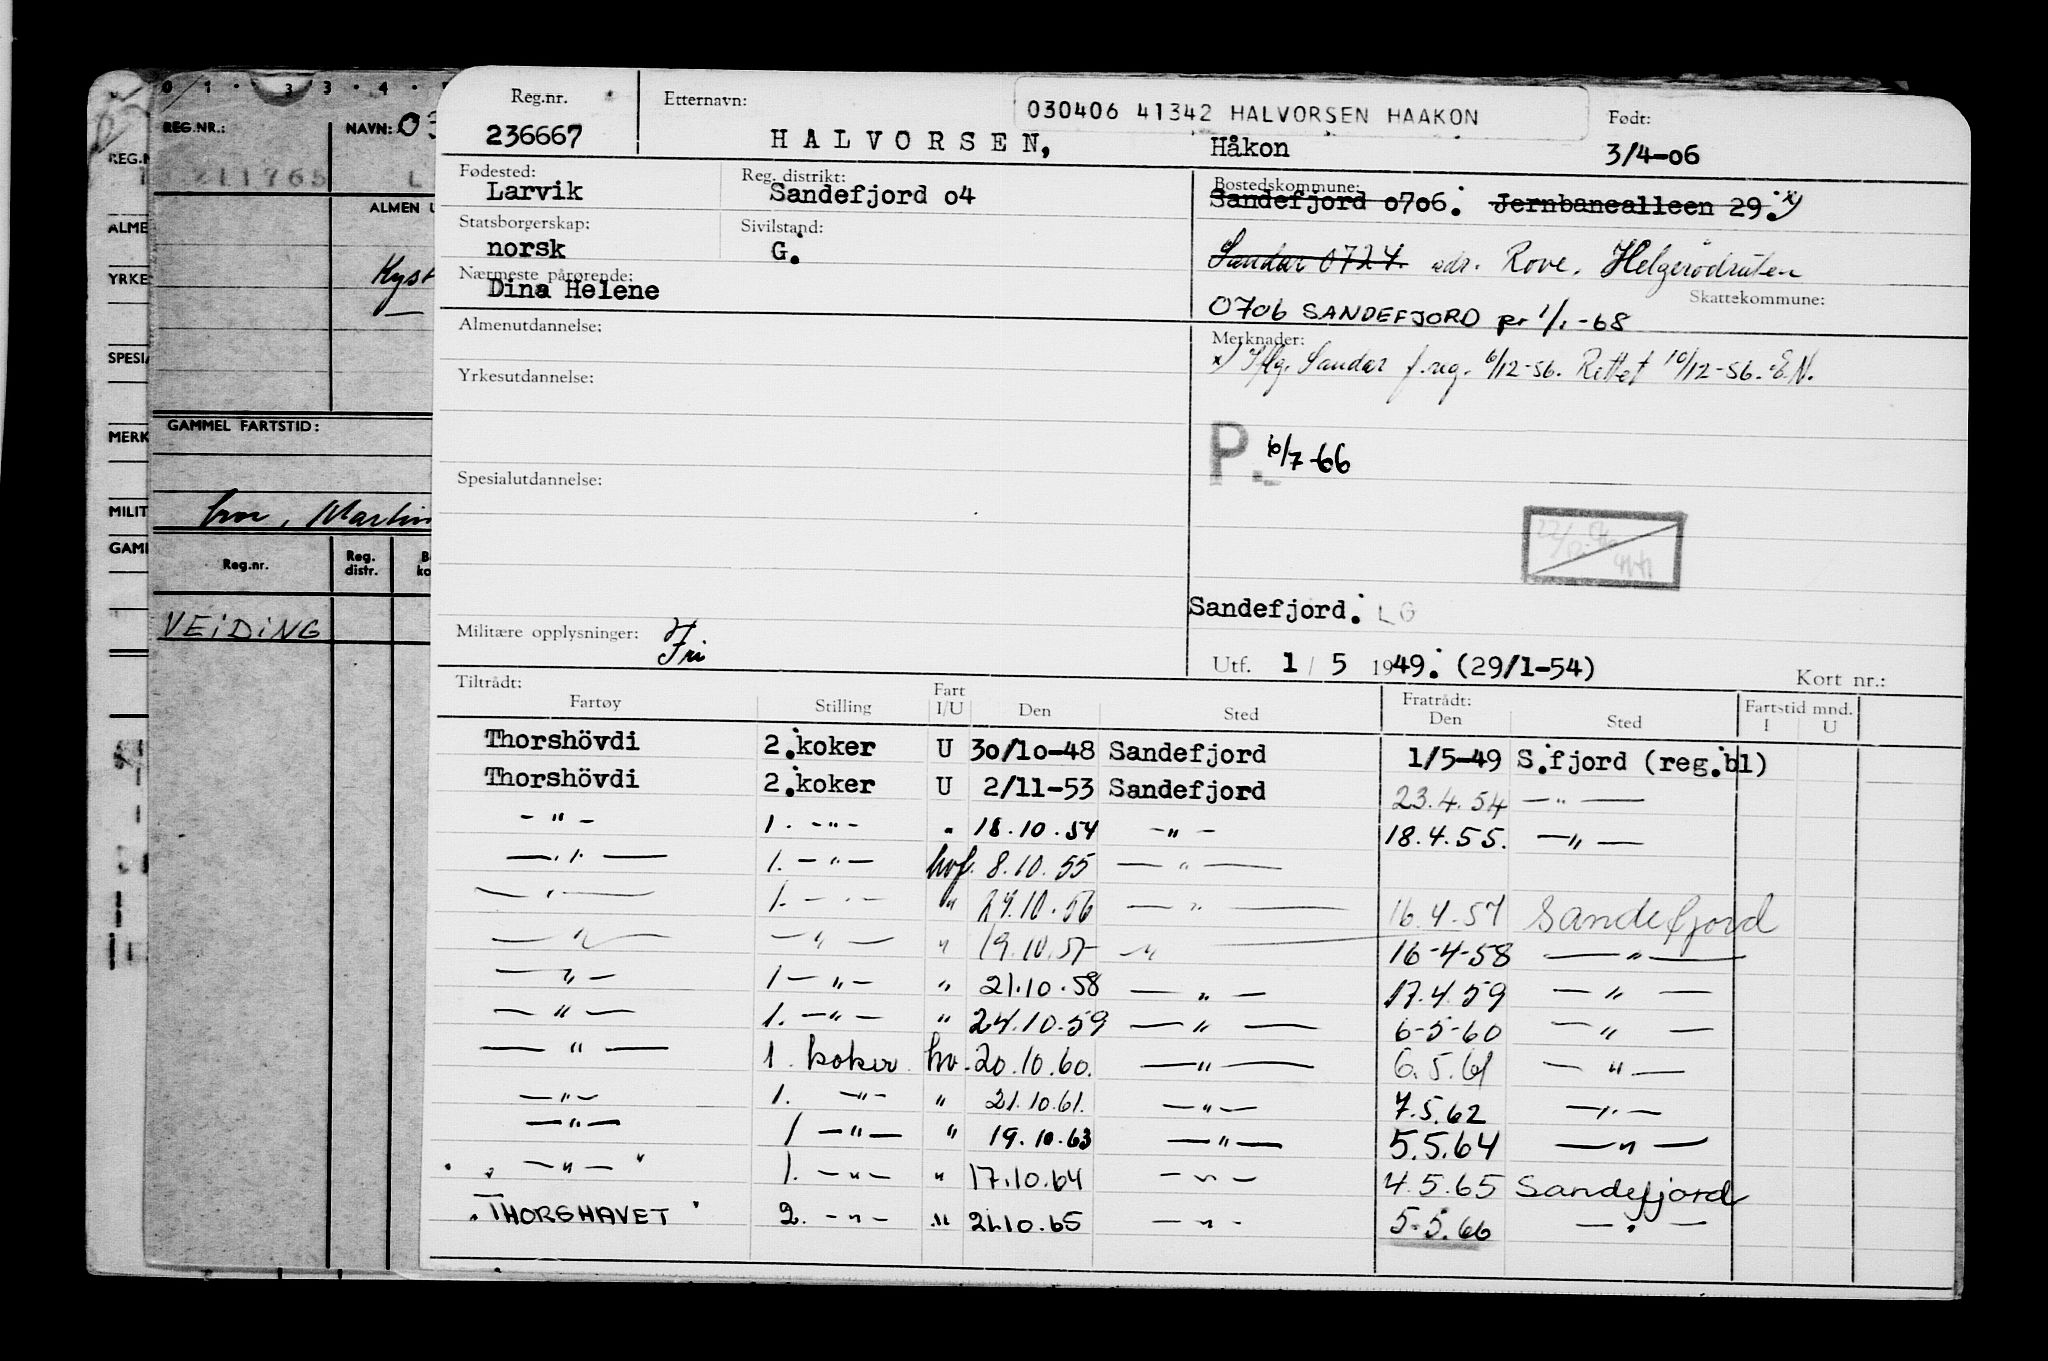 0 1 · 3 3 · 4 ·
REG.NR.: NAVN: 03
211765 L
ALMEN U
Kyst
GAMMEL FARTSTID:
Martin
Reg.nr. Reg. distr. B ko
VEIDING
REG.N
ALME
YRKE
SPESIA
MERK
MILIT
GAMI
Reg.nr. Etternavn: 030406 41342 HALVORSEN HAAKON Født:
236667 HALVORSEN, Håkon 3/4-06
Fødested: Reg. distrikt: Bostedskommune:
Larvik Sandefjord o4 Sandefjord o7o6. Jernbanealleen 29. x)
Statsborgerskap: Sivilstand:
norsk G. Sandar 0724. adr. Rove, Helgerödruten
Nærmeste pårørende: Skattekommune:
Dina Helene 0706 SANDEFJORD pr 1/1-68
Almenutdannelse: Merknader:
x) Iflg. Sandar f.reg. 6/12-56. Rettet 10/12-56. E.N.
Yrkesutdannelse:
P. 6/7-66
Spesialutdannelse:
Sandefjord. LG
Militære opplysninger: Fri
Utf. 1 / 5 1949. (29/1-54) Kort nr.:
Tiltrådt: Fratrådt: Fartstid mnd.
Fartøy Stilling Fart I/U Den Sted Den Sted I U
Thorshövdi 2.koker U 30/10-48 Sandefjord 1/5-49 S.fjord (reg.bl)
Thorshövdi 2.koker U 2/11-53 Sandefjord 23.4.54 — " —
- " - 1. - " - " 18.10.54 - " - 18.4.55. — " —
— " — 1. — " — hvf. 8.10.55 — " —
— " — 1. - " - " 24.10.56 — " — 16.4.57 Sandefjord
— " — — " — " 19.10.57 — " — 16-4-58 — " —
— " — 1 — " — " 21.10.58 — " — 17.4.59 — " —
— " — 1. — " — " 24.10.59 — " — 6-5-60 — " —
— " — 1. koker hv. 20.10.60. — " — 6.5.61 — " —
— " — 1. — " — " 21.10.61. — " — 7.5.62 — " —
— " — 1 — " — " 19.10.63 — " — 5.5.64 — " —
— " — 1. — " — " 17.10.64 — " — 4.5.65 Sandefjord
"THORSHAVET" 2. — " — " 21.10.65 — " — 5.5.66 — " —